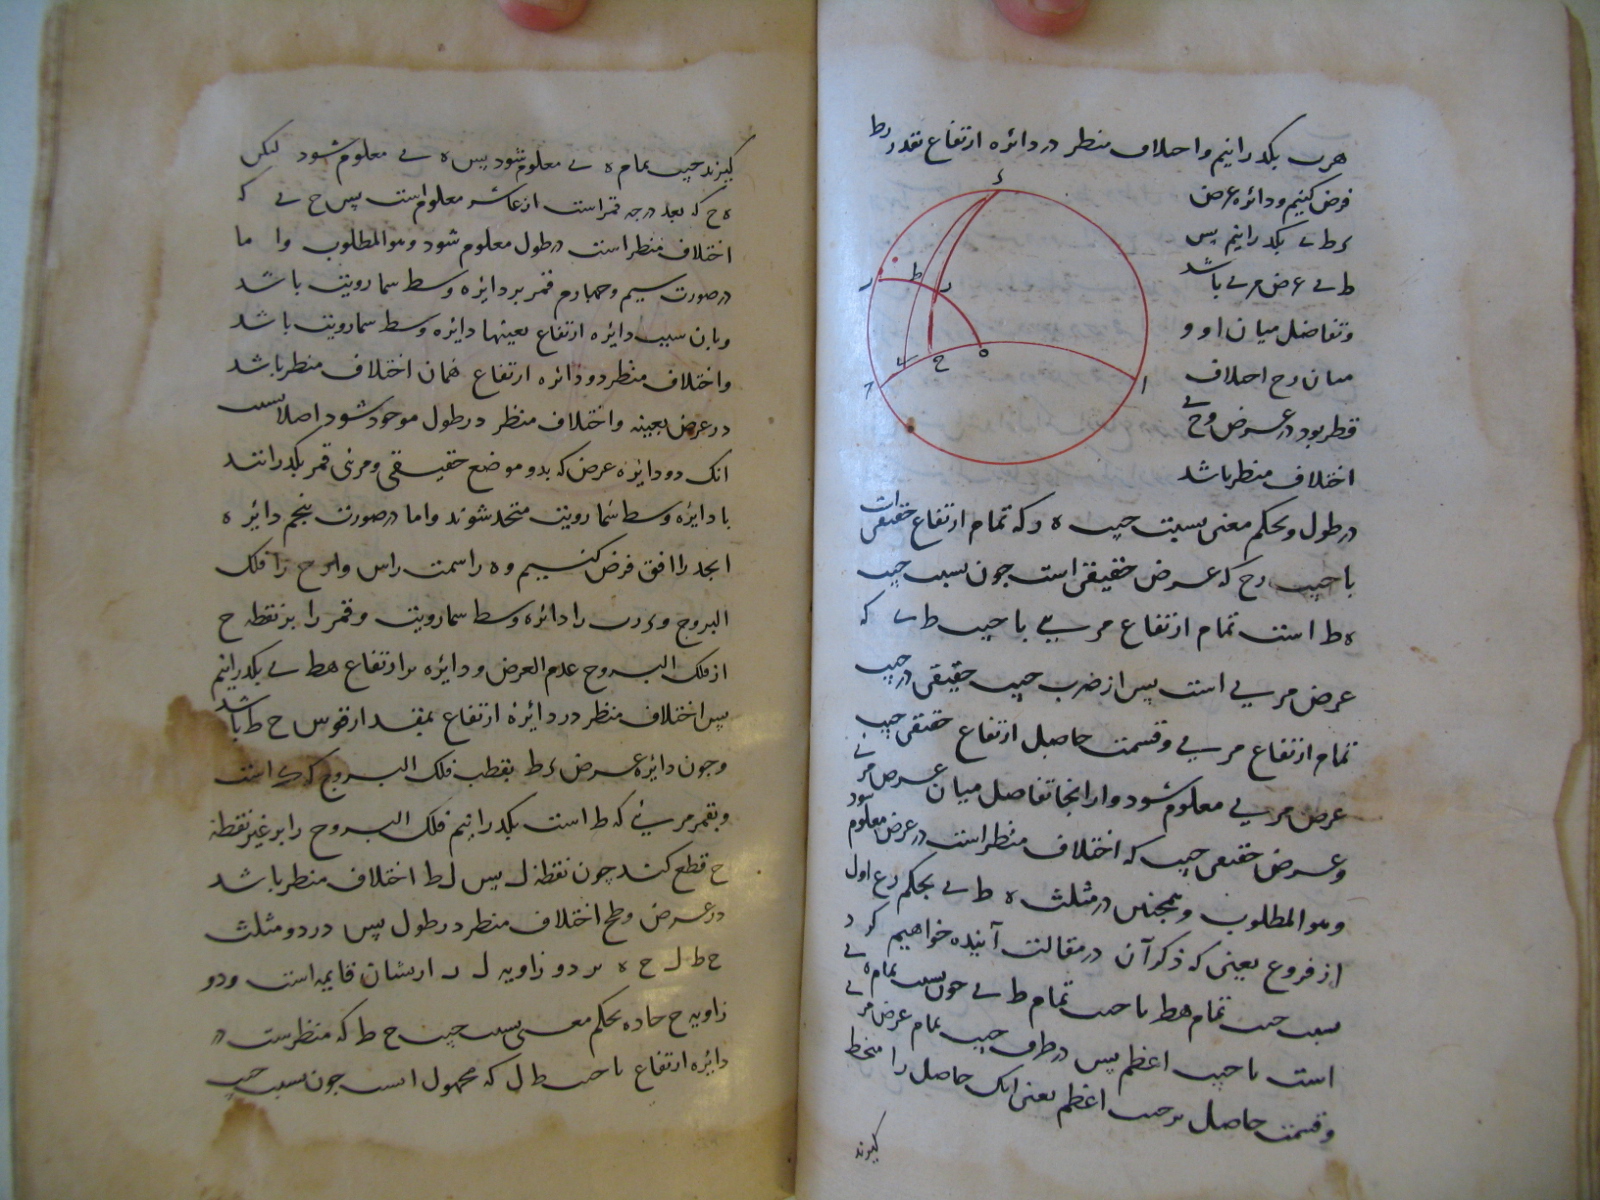 هرب بکدرانیم واحلاف منظر در دائره ارتفاع بقدر رط
فرض کنیم و دائره عرض
ءط ے بکدرانیم پس
ط ے عرض مرے باشد
و تفاضل میان او و
میان رح احلاف
قطر بود در عرض وح ے
اختلاف منظر باشد
ء
ر
ط
ر
ے
ح
ه
ا
در طول و بحکم معنی نسبت جیب ه ر که تمام ارتفاع حقیقی است
با جیب رح که عرض حقیقی است جون نسبت جیب
ه ط است تمام ارتفاع مریے با جیب ط ے که
عرض مریے است پس از ضرب جیب حقیقی در جیب
تمام ارتفاع مریے و قسمت حاصل ارتفاع حقیقی جیب
عرض مریے معلوم شود و از انجا تفاضل میان عرض مریے
و عرض حقیقی جیب که اختلاف منظر است در عرض معلوم شود
و هو المطلوب و همجنین در مثلث ه ط ے بحکم فرع اول
از فروع یعینی که ذکر آن در مقالت آینده خواهیم کرد
نسبت جیب تمام هط با جیب تمام ط ے جون نسبت تمام ه ے
است با جیب اعظم پس در طرف جیب تمام عرض مریے
و قسمت حاصل بر جیب اعظم یعنی انک حاصل را منحط
کیرند
کیرند جیب تمام ه ے معلوم شود پس ه ے معلوم شود لیکن
ه ح که بعد درجه قمر است از عاشر معلوم است پس ح ے که
اختلاف منظر است در طول معلوم شود و هو المطلوب و اما
در صورت سیم و جهارم قمر بر دایره وسط سما رویت باشد
و بان سبب دایره ارتفاع بعینها دایره وسط سما رویت باشد
و اختلاف منظر در دائره ارتفاع همان اختلاف منظر باشد
در عرض بعینه و اختلاف منظر در طول موجود شود اصلا بسبب
انک دو دایره عرض که بدو موضع حقیقی و مرئی قمر بکدرانند
با دایره وسط سما رویت متحد شوند و اما در صورت پنجم دایره
ابجد را افق فرض کنیم و ه را سمت راس و ا ح را فلک
البروج و ء ر ب را دائره وسط سما رویت و قمر را بر نقطه ح
از فلک البروج عدم العرض و دایره ارتفاع هط ے بکدرانیم
پس اختلاف منظر در دایره ارتفاع بمقدار قوس ح ط باشد
و جون دایره عرض ءط بقطب فلک البروج که ء است
و بقمر مریے که ط است بکدرانیم فلک البروج را بر غیر نقطه
ح قطع کند چون نقطه ل پس ل ط اختلاف منظر باشد
در عرض و ح اختلاف منظر در طول پس در دو مثلث
ح ط ل ح ه ر دو زاویه ل ر ازیشان قایمه است و دو
زاویه ح حاده بحکم معنی نسبت جیب ح ط که منظر ست در
دایره ارتفاع با جیب ط ل که مجهول است جون نسبت جیب